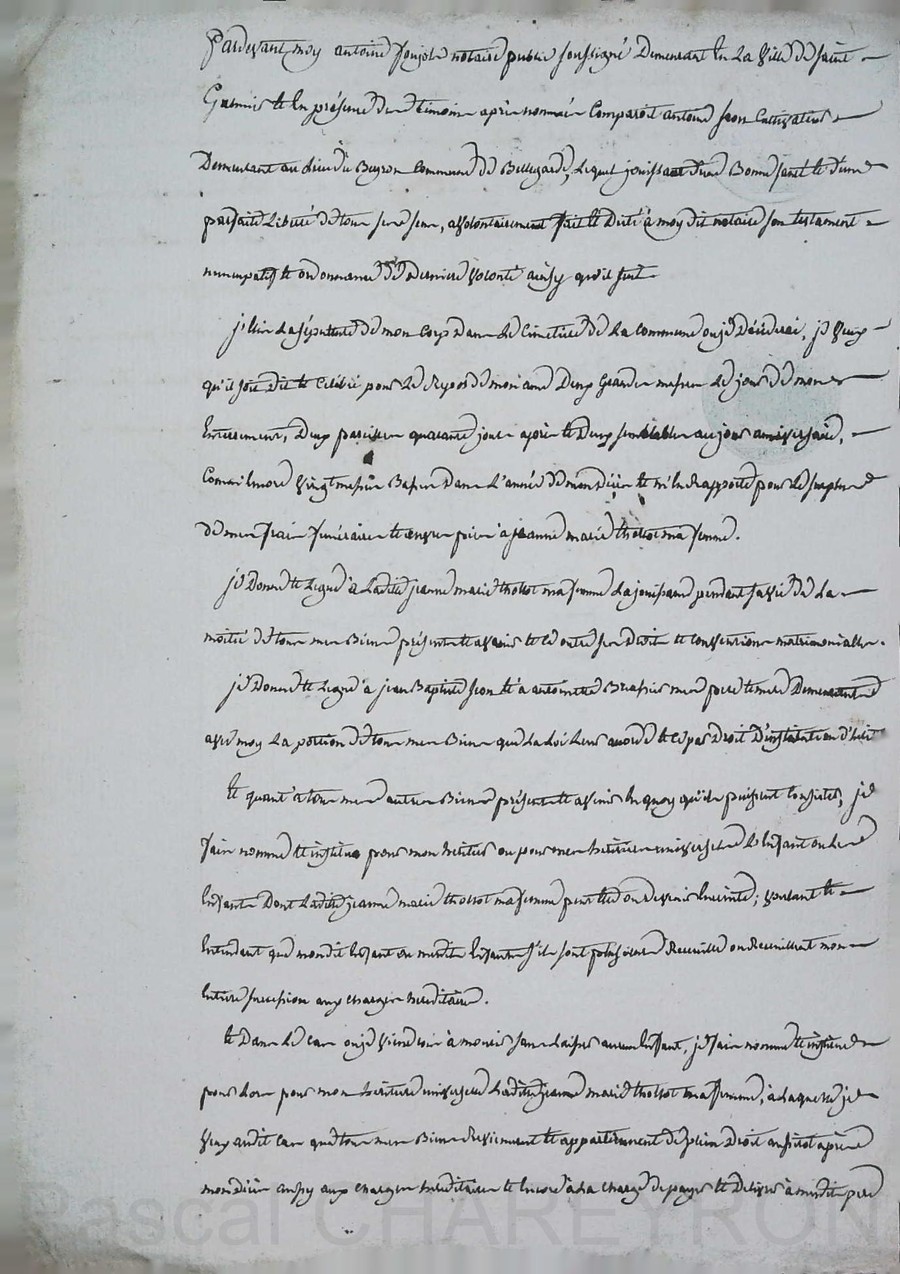 Pardevant moy antoine notaire public soussigné Demeurant En La ville de saint
Galmier et En présence des témoins après nommés Comparoit antoine jean Cultivateur
Demeurant au Lieu du Commune de Bellegarde, Lequel jouissant d'une Bonne santé et d'une
parfaite Liberté de tous ses sens, a volontairement fait et Dicté à moy dit notaire son testament
nuncupatif et ordonnance de Derniere volonté ainsy qu'il suit
j'Elis La sépulture de mon Corps dans Le Cimetiere de La Commune ou je Décéderai, je veux
qu'il soit dit et Célébré pour Le Repos de mon ame Deux Grandes messes Le jour de mon
Enterrement, Deux pareilles quarante jours après et Deux semblables au jour anniversaire,
Comm'Encore vingt messes Basses Dans L'année de mon Décès et m'En Rapporte pour Le surplus
de mes frais funéraires et œuvres pies à jeanne marie thollot ma femme.
je Donne et Legue à Ladite jeanne marie thollot ma femme La jouissance pendant sa vie de La
moitié de tous mes Biens présents et avenir et ce outre ses Droits et Conventions matrimoniales.
je Donne et Legue à jean Baptiste jean et à antoinette mes pere et mere Demeurants
avec moy La portion de tous mes Biens que La Loi Leur accorde et ce par Droit D'institution d'hérité
Et quant à tous mes autres Biens présents et avenir En quoy qu'ils puissent Consister, je
fais nomme et institue pour mon héritier ou pour mes héritiers universels L'Enfant ou Les
Enfants Dont Ladite jeanne marie thollot ma femme peut être ou Devenir Enceinte; voulant et
Entendant que mondit Enfant ou mesdits Enfants s'ils sont plusieurs Recueille ou Recueillent mon
Entiere succession aux charges héréditaires.
Et Dans Le Cas ou je viendrois à mourir sans Laisser aucun Enfant, je fais nomme et institue
pour Lors pour mon héritiere universelle Ladite jeanne marie thollot ma femme, à Laquelle je
veux audit Cas que tous mes Biens Reviennent et appartiennent de plein Droit aussitot après
mon décès aussy aux charges héréditaires et Encore à La charge de payer et Délivrer à mesdits pere
Pascal CHAREYRON